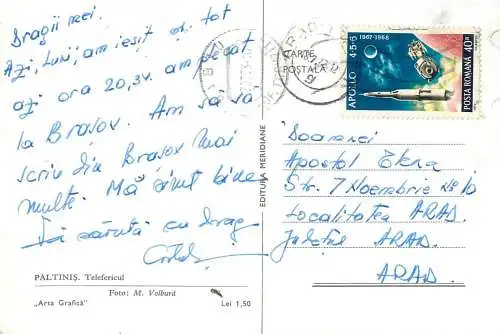 Dragii mei.
Azi, Luni, am ieșit de tot
azi ora 20,30. am plecat
la Brașov. Am să vă
scriu din Brașov mai
multe. Mă simt bine
Vă sărută cu drag
PĂLTINIȘ. Telefericul
Foto: M. Volbură
„Arta Grafică”
Lei 1,50
EDITURA MERIDIANE
CARTE
POȘTALĂ
1967-1968
APOLLO 4-5-6
POSTA ROMANA 40B
Doamnei
Apostol Elena
Str. 7 Noembrie Nº 10
Localitatea ARAD.
Județul ARAD.
ARAD